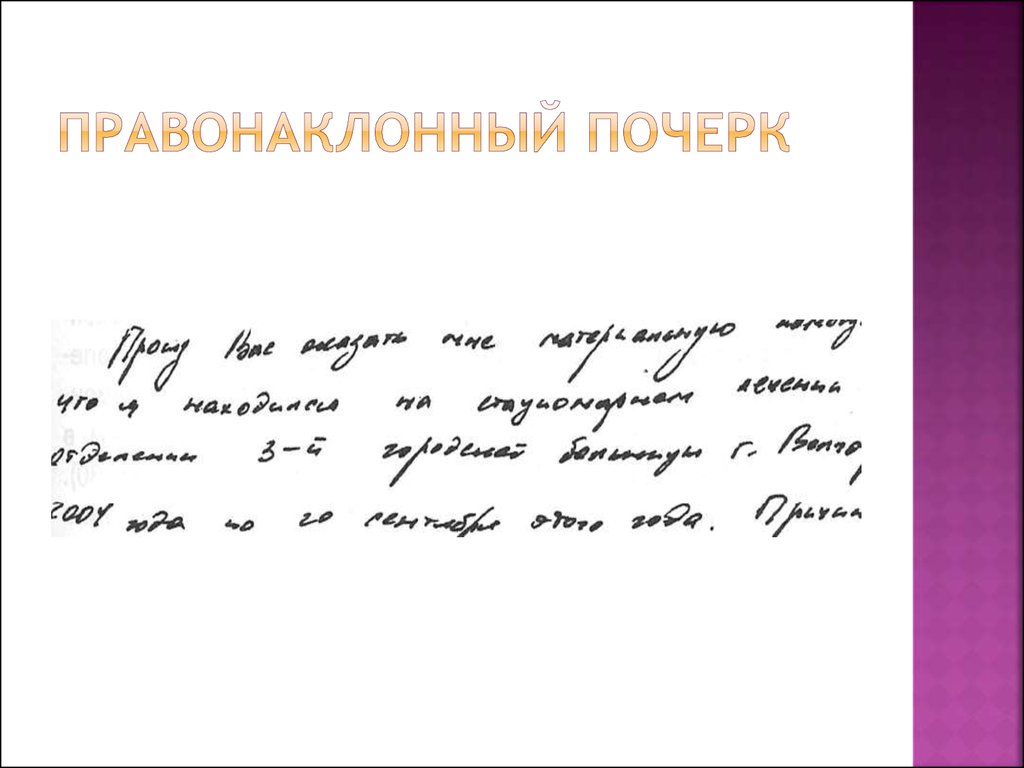 ПРАВОНАКЛОННЫЙ ПОЧЕРК
Прошу Вас оказать мне материальную помощ
что я находился на стационарном лечении
отделении 3-й городской больницы г. Волго
2004 года по 20 сентября этого года. Причин